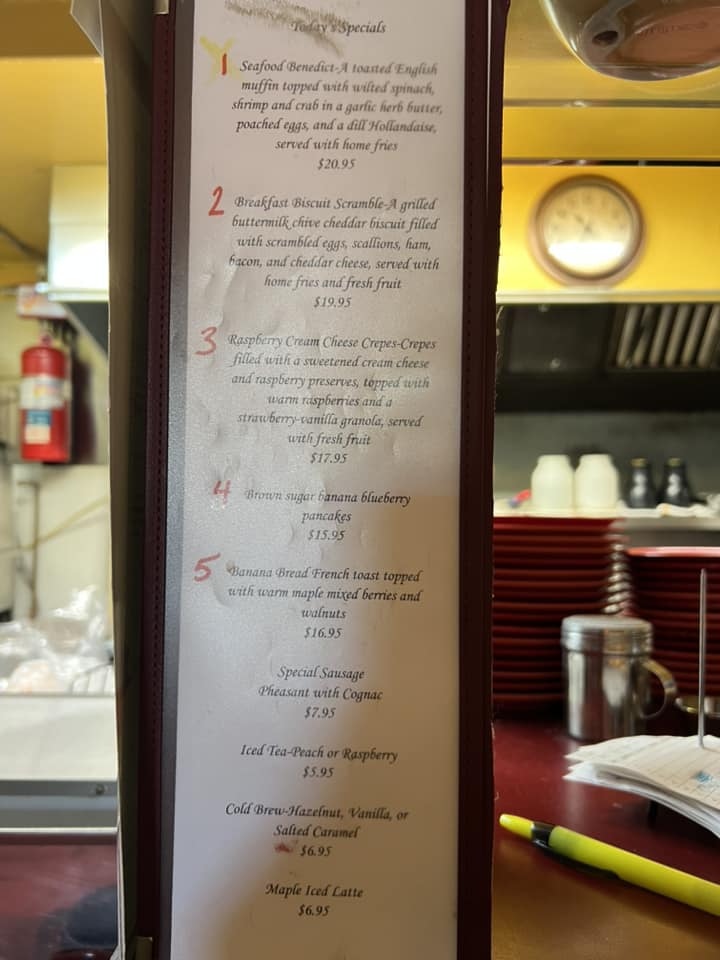 Today's Specials
1
Seafood Benedict-A toasted English
muffin topped with wilted spinach,
shrimp and crab in a garlic herb butter,
poached eggs, and a dill Hollandaise,
served with home fries
$20.95
2
Breakfast Biscuit Scramble-A grilled
buttermilk chive cheddar biscuit filled
with scrambled eggs, scallions, ham,
bacon, and cheddar cheese, served with
home fries and fresh fruit
$19.95
3
Raspberry Cream Cheese Crepes-Crepes
filled with a sweetened cream cheese
and raspberry preserves, topped with
warm raspberries and a
strawberry-vanilla granola, served
with fresh fruit
$17.95
4
Brown sugar banana blueberry
pancakes
$15.95
5
Banana Bread French toast topped
with warm maple mixed berries and
walnuts
$16.95
Special Sausage
Pheasant with Cognac
$7.95
Iced Tea-Peach or Raspberry
$5.95
Cold Brew-Hazelnut, Vanilla, or
Salted Caramel
$6.95
Maple Iced Latte
$6.95